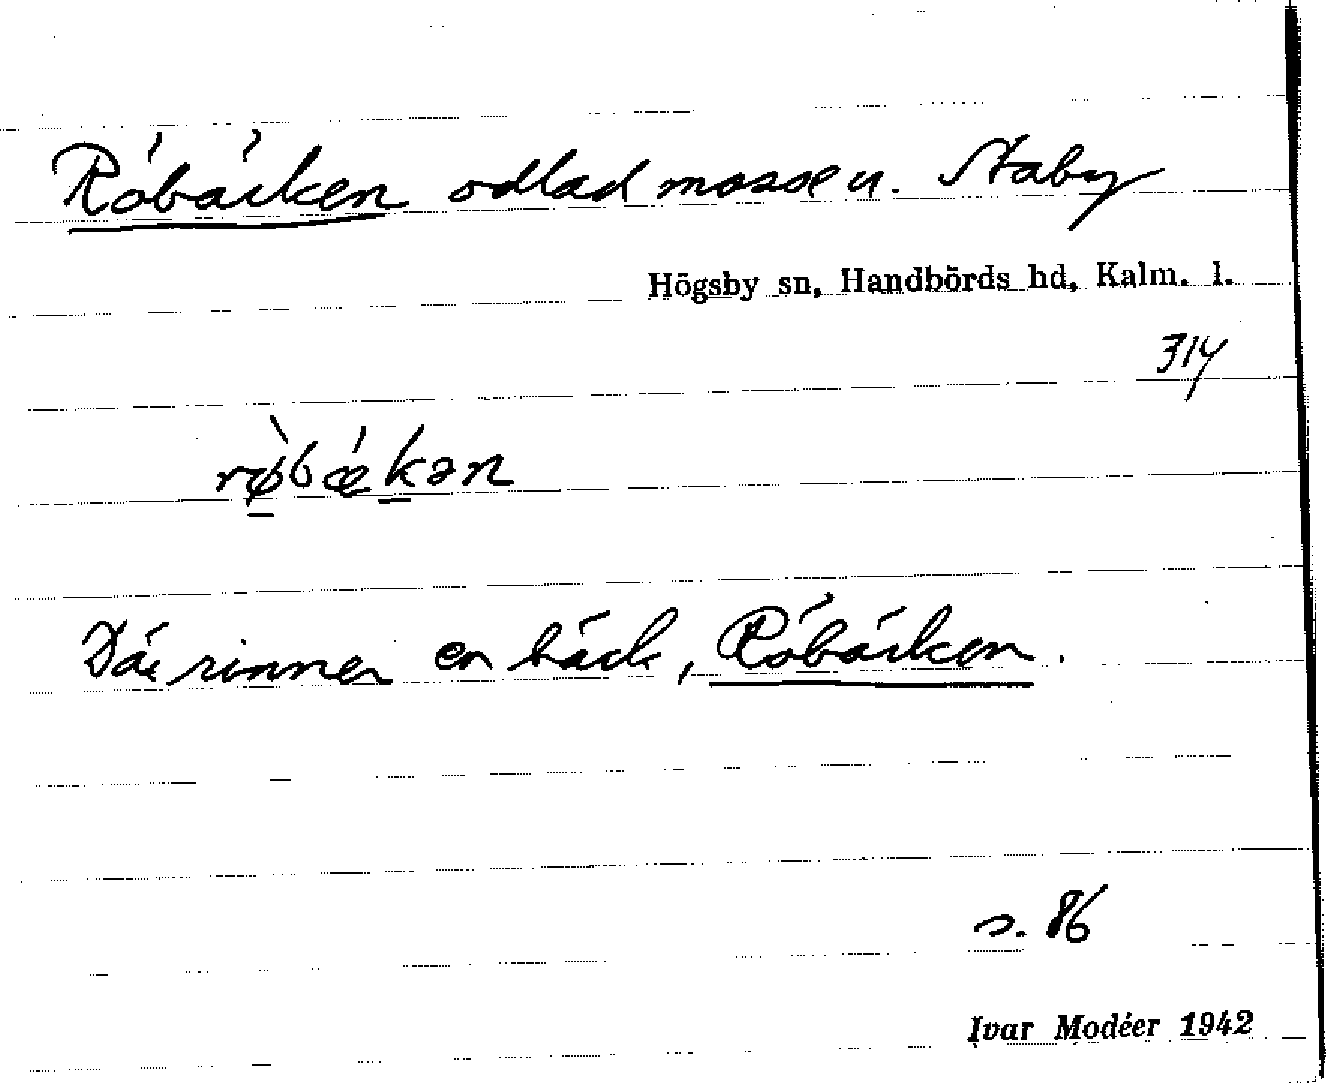 Röbäcken odlad mosse u. Staby
Högsby sn, Handbörds hd, Kalm. l.
314
rø̀bǽkən
Där rinner en bäck, Röbäcken.
s. 86
Ivar Modéer 1942